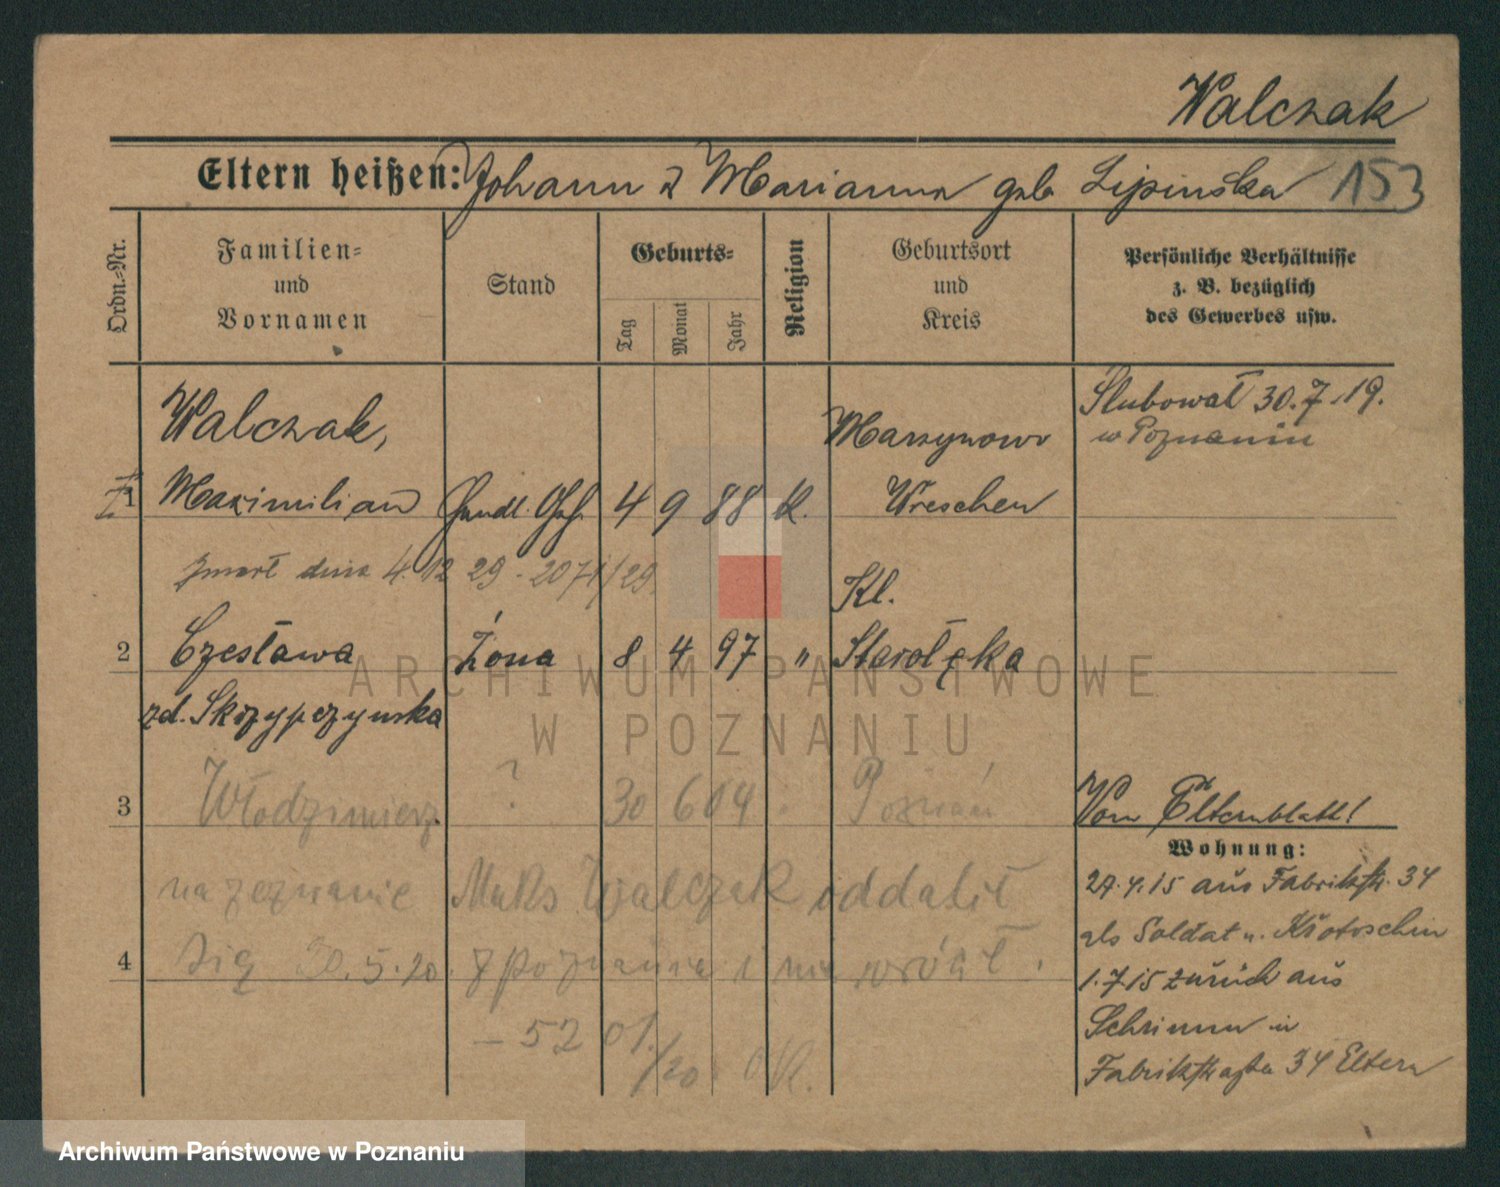 Walczak
Eltern heißen: Johann u Marianna geb Lipinska 153
Ordn.-Nr.
Familien-
und
Vornamen
Stand
Geburts-
Tag
Monat
Jahr
Religion
Geburtsort
und
Kreis
Persönliche Verhältnisse
z. B. bezüglich
des Gewerbes usw.
Walczak,
1 Maximilian Handl. Geh. 4 9 88 k.
Marzynowo
Wreschen
Slubował 30.7.19.
w Poznaniu
zmarł dnia 4.12 29 - 2071/29.
2 Czesława Żona 8 4 97 "
Kl.
Starołęka
zd. Skrzypczynska
3 Włodzimierz ? 30 6 Poznań
Vom Elternblatt!
Wohnung:
27.4.15 aus Fabrikstr. 34
als Soldat n. Krotoschin
1.7.15 zurück aus
Schrimm in
Fabrikstraße 34 Eltern
na zeznanie Maks Walczak oddalił
4 się 30.5.20. z Poznania i nie wrócił.
- 52 01./20
Archiwum Państwowe
w Poznaniu
Archiwum Państwowe w Poznaniu